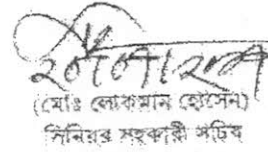 (মোঃ লোকমান হোসেন)
সিনিয়র সহকারী সচিব